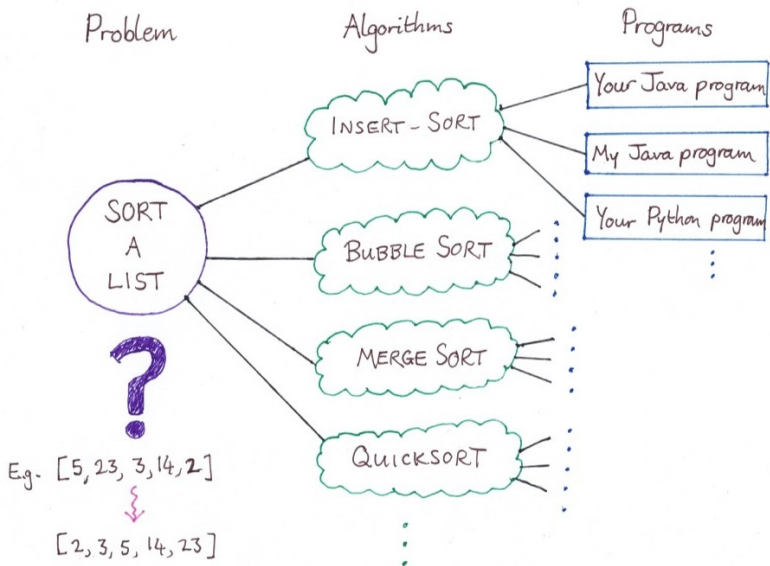 Problem
Algorithms
Programs
SORT
A
LIST
?
E.g. [5, 23, 3, 14, 2]
[2, 3, 5, 14, 23]
INSERT-SORT
BUBBLE SORT
MERGE SORT
QUICKSORT
Your Java program
My Java program
Your Python program